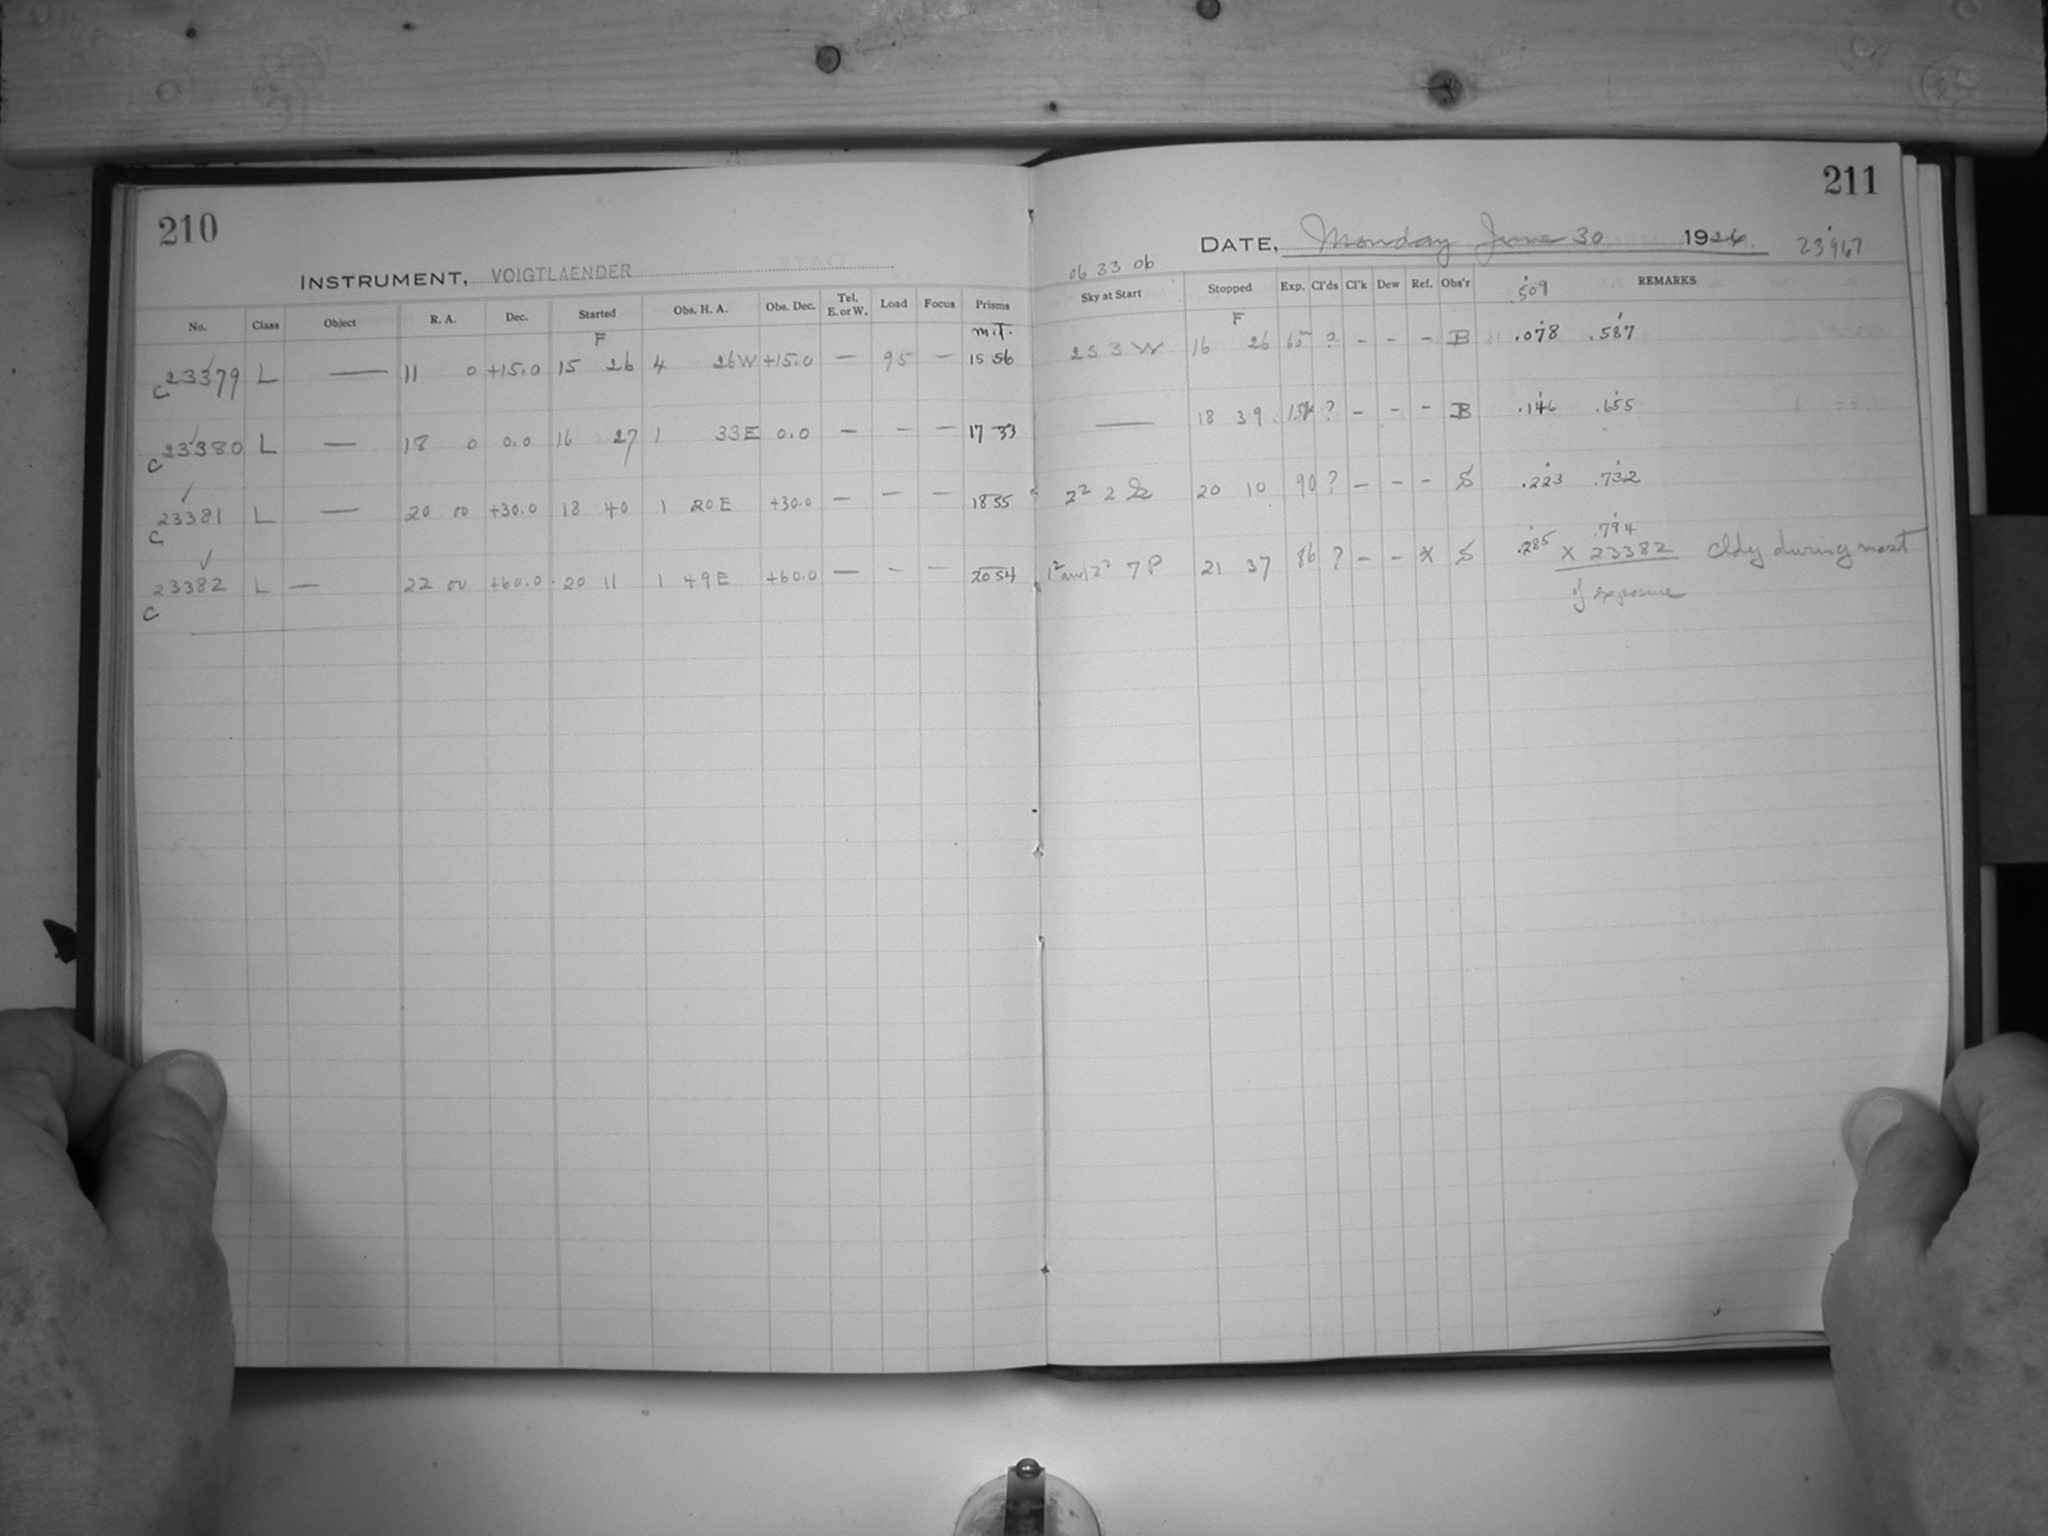 210
INSTRUMENT, VOIGTLAENDER
No. Class Object R. A. Dec. Started Obs. H. A. Obs. Dec. Tel. E. or W. Load Focus Prisms
F m.T.
C 23379 L — 11 0 +15.0 15 26 4 26W +15.0 — 95 — 15 56
C 23380 L — 18 0 0.0 16 27 1 33E 0.0 — — — 17 33
C 23381 L — 20 00 +30.0 18 40 1 20E +30.0 — — — 18 55
C 23382 L — 22 00 +60.0 20 11 1 49E +60.0 — — — 20 54
211
DATE, Monday June 30 1924. 23967
06 33 06
Sky at Start Stopped Exp. Cl'ds Cl'k Dew Ref. Obs'r .509 REMARKS
F
2 3 3 W 16 26 60 ? - - - B .078 .587
— 18 39 132 ? - - - B .146 .655
2² 2 20 10 90 ? - - - S .223 .732
1² and 2² 7 P 21 37 86 ? - - X S .285 .794
X 23382 Cldy during most
of exposure